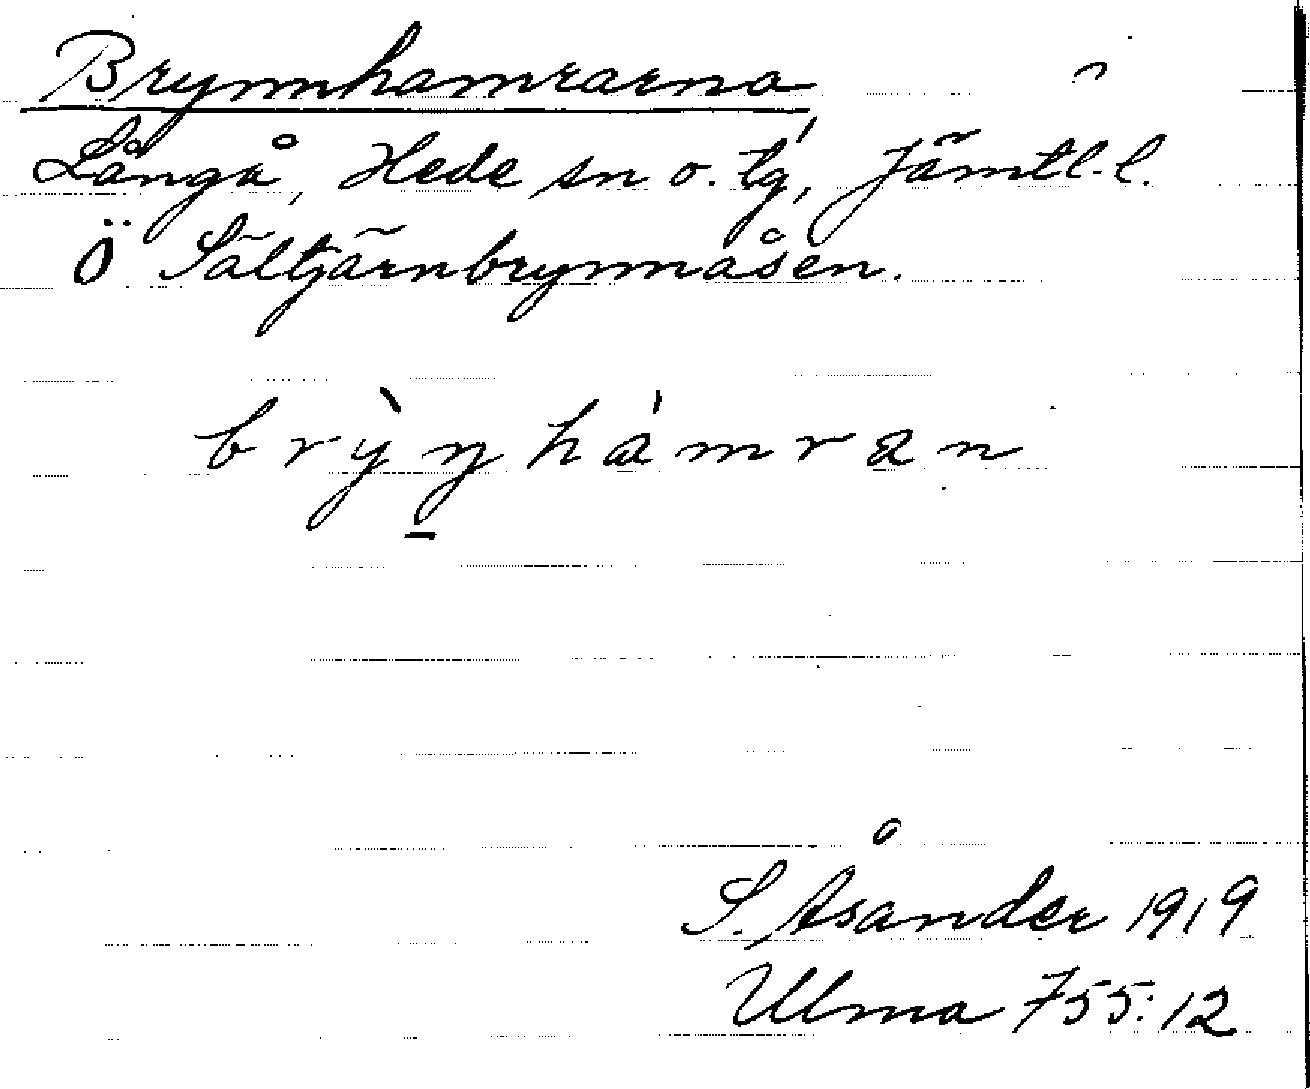 Brynnhamrarna
Långå, Hede sn o. tg, Jämtl. l.
Ö Sältjärnbrynnåsen.
brỳn̠hámran
S. Åsander 1919
Ulma 755:12